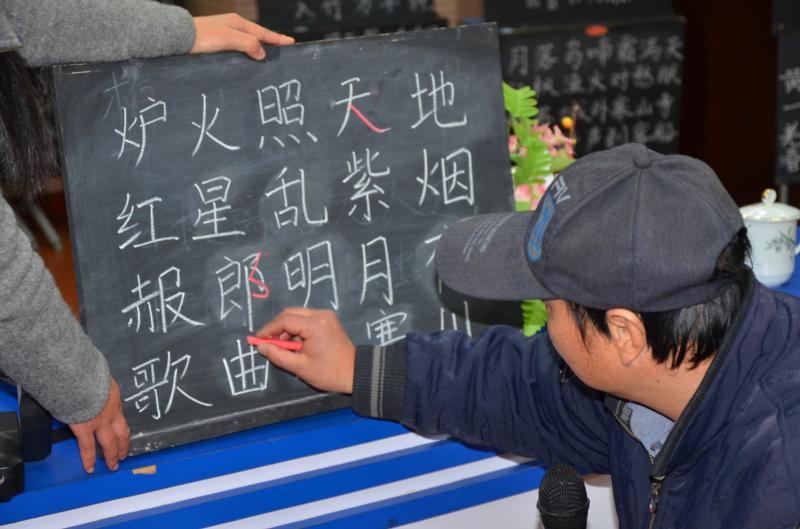 炉火照天地
红星乱紫烟
赧郎明月
歌曲寒川
月落乌啼霜满天
枫渔火对愁眠
外寒山寺
声到客船